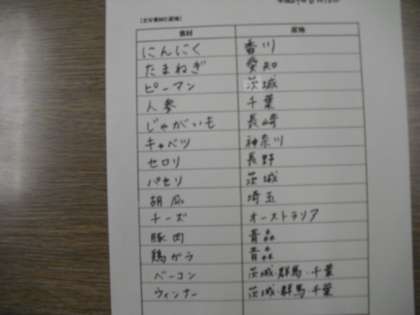 【主な食材と産地】
食材 産地
にんにく 香川
たまねぎ 愛知
ピーマン 茨城
人参 千葉
じゃがいも 長崎
キャベツ 神奈川
セロリ 長野
パセリ 茨城
胡瓜 埼玉
チーズ オーストラリア
豚肉 青森
鶏ガラ 青森
ベーコン 茨城・群馬・千葉
ウィンナー 茨城・群馬・千葉